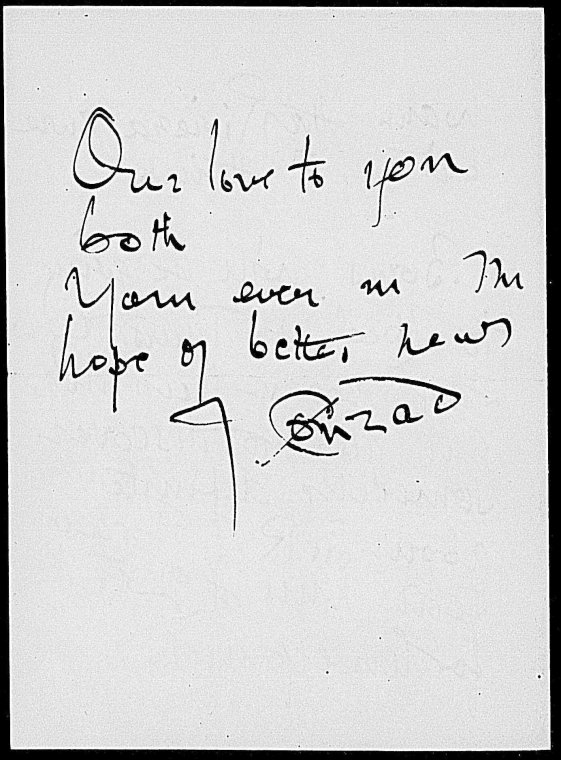 Our love to you
both
Yours ever in the
hope of better news
J. Conrad